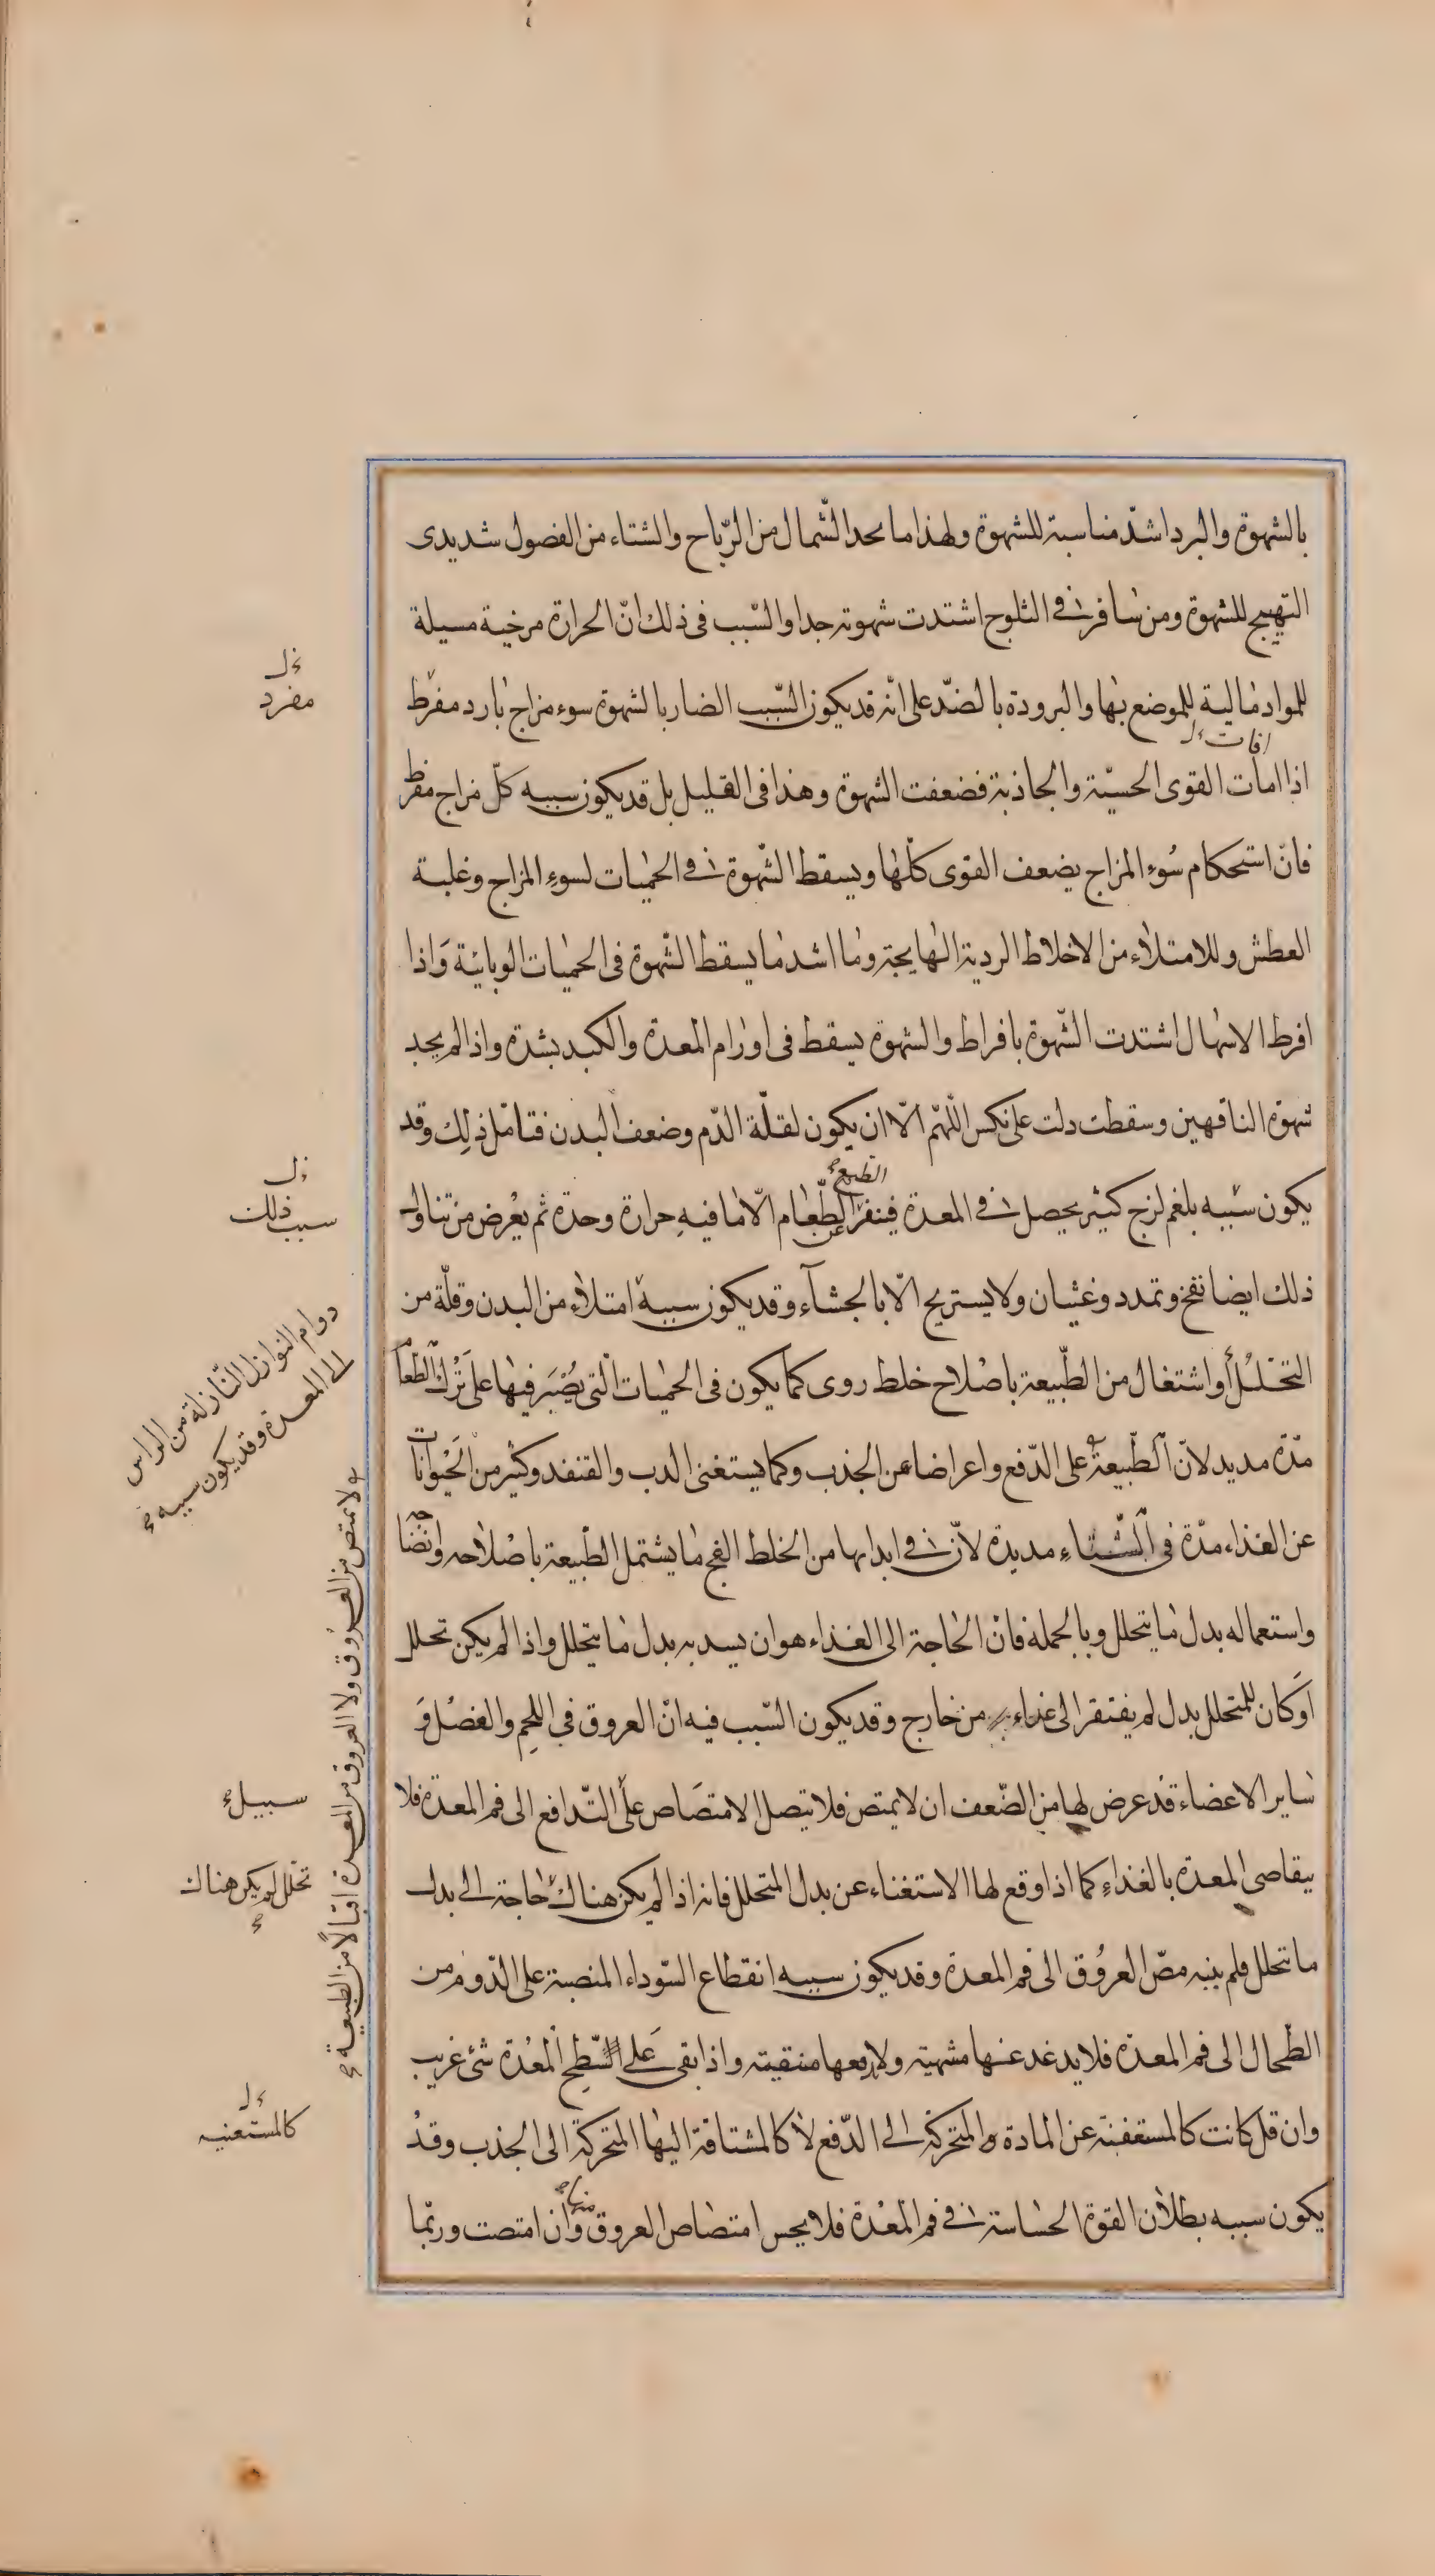 بالشهوة والبرد اشدّ مناسبة للشهوة ولهذا ما نجد الشّمال من الرّياح والشتاء من الفصول شديدى
التهييج للشهوة ومن سافر فى الثلوج اشتدت شهوته جدا والسّبب فى ذلك انّ الحرارة مرخية مسيلة
للمواد مالية للموضع بها والبرودة بالضدّ على انّه قد يكون السّبب الضار بالشهوة سوء مزاج بارد مفرط
افات ل
اذا امات القوى الحسيّة والجاذبة فضعفت الشهوة وهذا فى القليل بل قد يكون سببه كلّ مزاج مفرط
فانّ استحكام سُوء المزاج يضعف القوى كلّها ويسقط الشّهوة فى الحميات لسوء المزاج وغلبة
العطش وللامتلاء من الاخلاط الردية الهايجة وما اشد ما يسقط الشّهوة فى الحميات الوبائية وَاذا
افرط الاسهال اشتدت الشّهوة بافراط والشهوة يسقط فى اورام المعدة والكبد بشدة واذا لم يجد
شهوة الناقهين وسقطت دلت على نكس اللّهمّ الّا ان يكون لقلّة الدّم وضعف البدن فتامّل ذلِك وقد
يكون سَببه بلغم لزج كثير يحصل فى المعدة فينفر الطبع عن الطّعام الّا ما فيهِ حرارة وحدة ثم يعْرض من تناول
ذلك ايضا نفخ وتمدد وغثيان ولا يستريح الّا بالجشآء وقد يكون سببه امتلاء من البدن وقلّة من
التحَلّلُ أو اشتغال من الطّبيعة باصْلاح خلط روى كما يكون فى الحميات الّتى يُصْبَر فيها على تَرْك الطّعام
مدّة مديد لانّ الطّبيعة على الدّفع واعراضا عن الجذب وكما يستغنى الدب والقنفد وكثير من الحَيْوانات
عن الغذاء مدّة فى الشّتاء مديدة لانّ فى ابدانها من الخلط الفج ما يشتمل الطّبيعة باصْلاحه وانضاجه
واستعماله بدل ما يتحلل وبالجملة فانّ الحاجة الى الغذاء هو ان يسد به بدل ما يتحلل واذا لم يكن تحلل
اوَ كان للمتحلل بدل لم يفتقر الى غذاء من خارج وقد يكون السّبب فيه انّ العروق فى اللحِم والعضْل وَ
ساير الاعضاء قد عرض لها من الضّعف ان لا يمتص فلا يتصل الامتصَاص على التّدافع الى فم المعدة فلا
يتقاصى المعدة بالغذاءِ كما اذا وقع لها الاستغناء عن بدل المتحلل فانه اذا لم يكن هناك حاجة الى بدل
ما تحلل فلم ينبه مصّ العرُوق الى فم المعدة وقد يكون سببه انقطاع السّوداء المنصبة على الدّوم من
الطّحال الى فم المعدة فلا يدغدغها مشهية ولا يدفعها منقيته واذا بقى عَلى سطح المعْدة شئ غريب
وان قل كانت كالمستعفنة عن المادة المتحركة الى الدّفع لا كالمشتاقة اليها المتحركة الى الجذب وقدْ
يكون سببه بطلان القوّة الحساسة فى فم المعْدة فلا يحس امتصاص العروق منها وان امتصت وربّما
مفرد
سبب ذلك
دوام النوازل النّازلة من الراس
الى المعدة وقد يكون سببه
ولا يمتص من العروق ولا العروق من المعدة اقبالًا من الطبيعة
سبيل
تحلل لم يكن هناك
كالمستغنيه